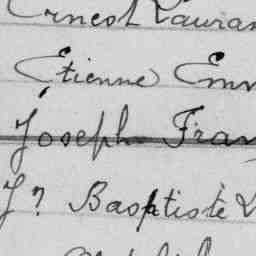 Ernest Lauran
Étienne Emm
Joseph Fran
J? Baptiste